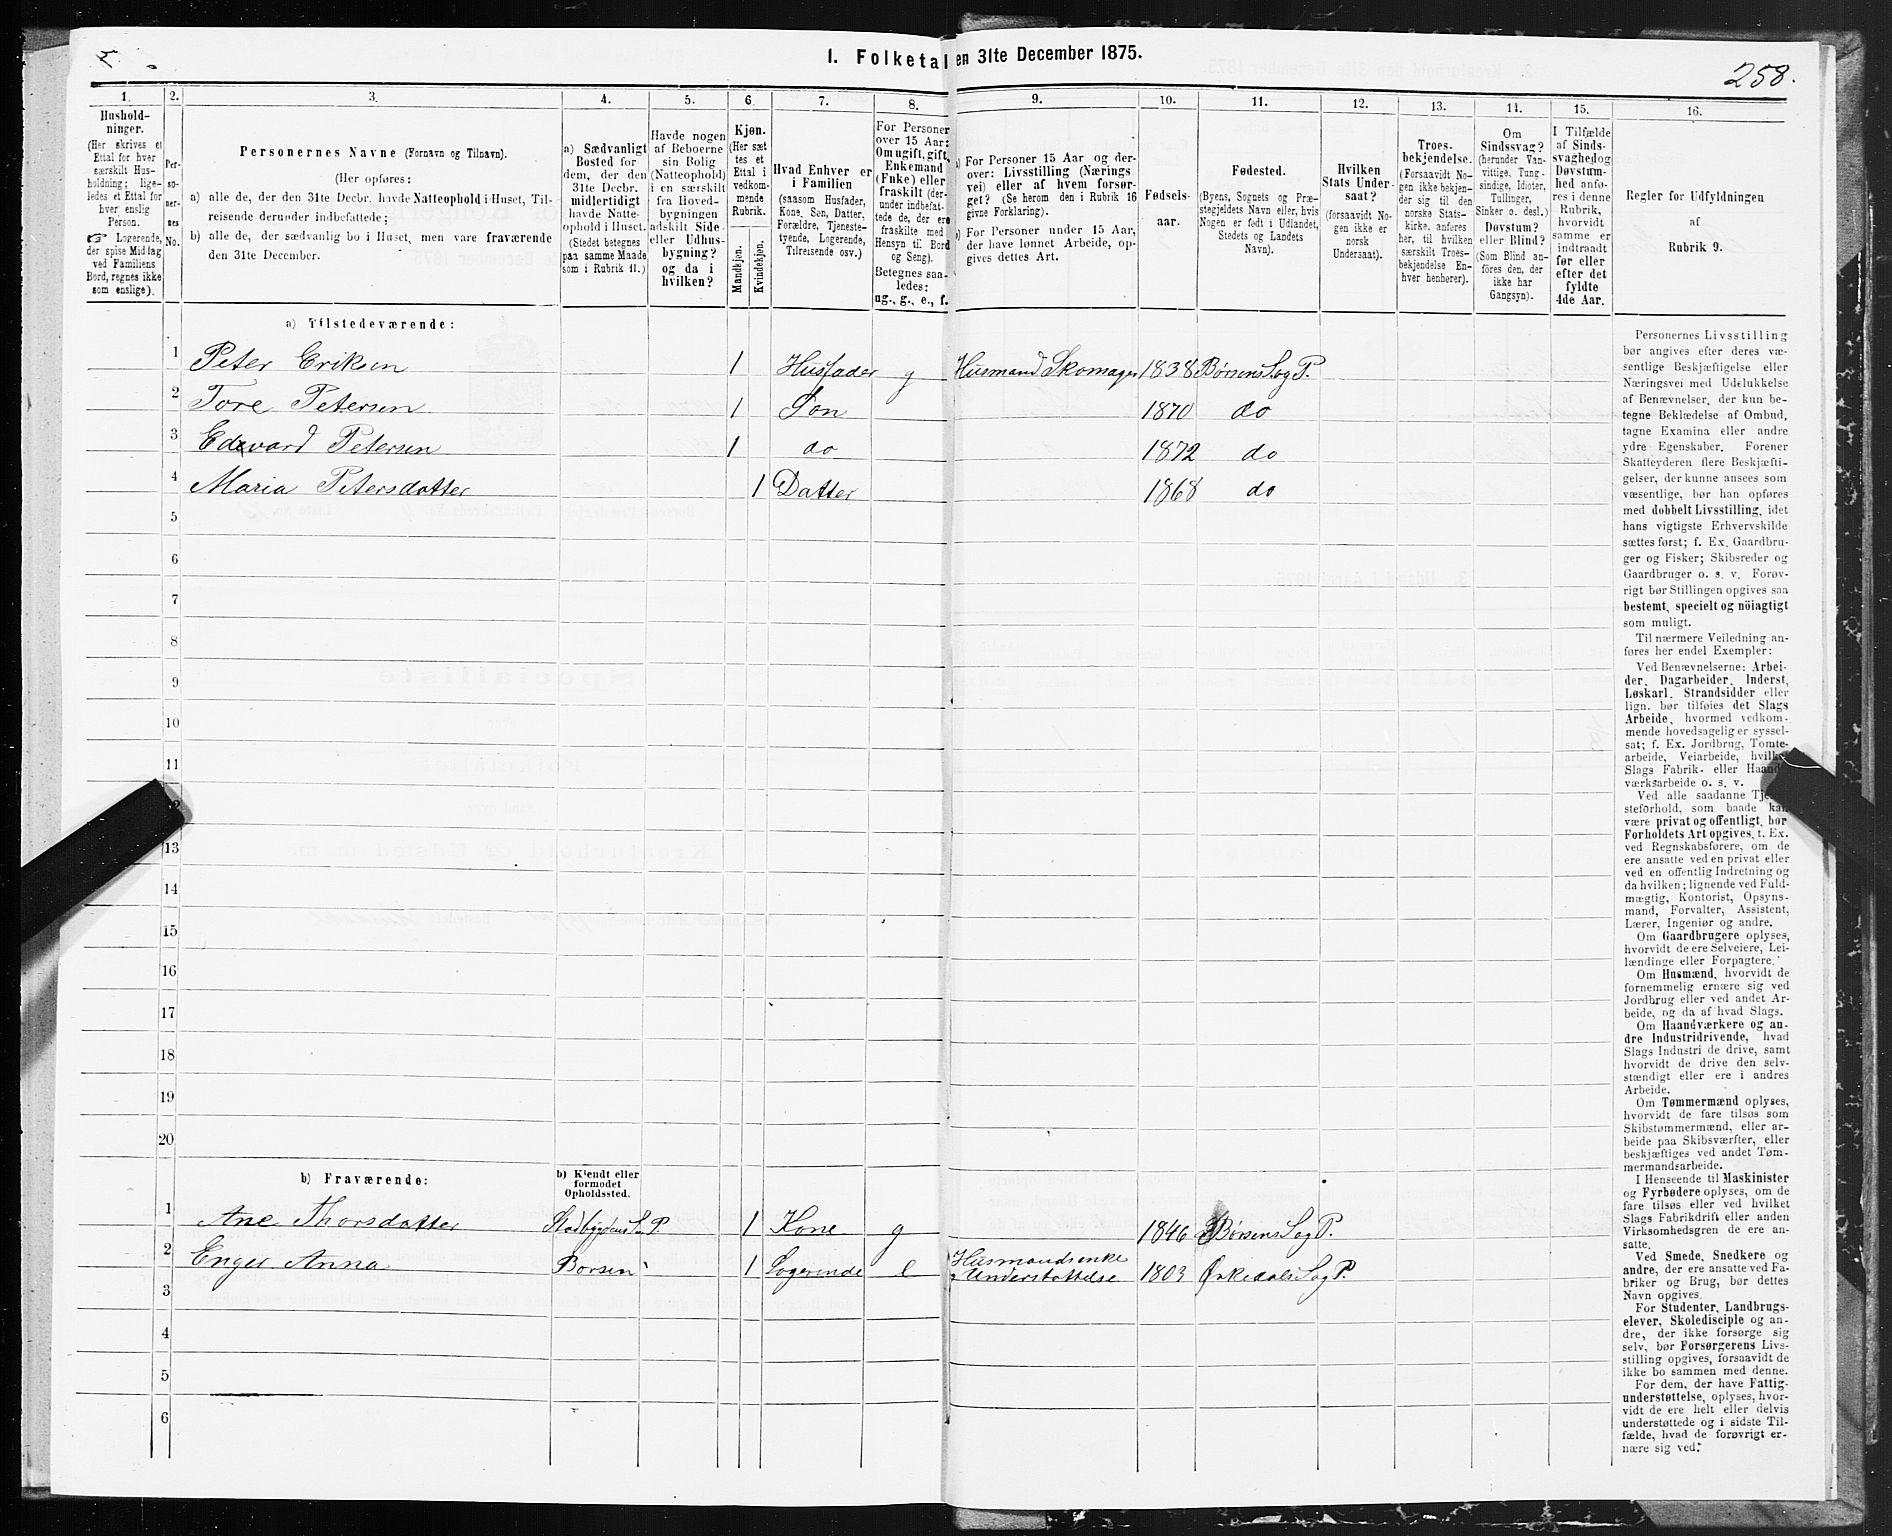 1. Folketal den 31te December 1875.
258.
1.
2.
3.
4.
5.
6.
7.
8.
9.
10.
11.
12.
13.
14.
15.
16.
Hushold-
ninger.
(Her skrives et
Ettal for hver
særskilt Hus-
holdning; lige-
ledes et Ettal for
hver enslig
Person.
☞ Logerende,
der spise Middag
ved Familiens
Bord, regnes ikke
som enslige).
Per-
so-
ner-
nes
No.
Personernes Navne (Fornavn og Tilnavn).
(Her opføres:
a) alle de, der den 31te Decbr. havde Natteophold i Huset, Til-
reisende derunder indbefattede;
b) alle de, der sædvanlig bo i Huset, men vare fraværende
den 31te December.
a) Sædvanligt
Bosted for
dem, der den
31te Decbr.
midlertidigt
havde Natte-
ophold i Huset.
(Stedet betegnes
paa samme Maade
som i Rubrik 11.)
Havde nogen
af Beboerne
sin Bolig
(Natteophold)
i en særskilt
fra Hoved-
bygningen
adskilt Side-
eller Udhus-
bygning?
og da i
hvilken?
Kjøn.
(Her sæt
tes et
Ettal i
vedkom-
mende
Rubrik.
Mandkjøn.
Kvindekjøn.
Hvad Enhver er
i Familien
(saasom Husfader,
Kone, Søn, Datter,
Forældre, Tjeneste-
tyende, Logerende,
Tilreisende osv.)
For Personer
over 15 Aar:
Om ugift, gift,
Enkemand
(Enke) eller
fraskilt (der-
under indbefat-
tede de, der ere
fraskilte med
Hensyn til Bord
og Seng).
Betegnes saa-
ledes:
ug., g., e., f.
a) For Personer 15 Aar og der-
over: Livsstilling (Nærings
vei) eller af hvem forsør-
get? (Se herom den i Rubrik 16
givne Forklaring).
b) For Personer under 15 Aar,
der have lønnet Arbeide, op-
gives dettes Art.
Fødsels-
aar.
Fødested.
(Byens, Sognets og Præ-
stegjeldets Navn eller, hvis
Nogen er født i Udlandet,
Stedets og Landets
Navn).
Hvilken
Stats Under-
saat?
(forsaavidt No-
gen ikke er
norsk
Undersaat).
Troes-
bekjendelse.
(Forsaavidt No-
gen ikke bekjen-
der sig til den
norske Stats-
kirke, anføres
her, til hvilken
særskilt Troes-
bekjendelse En-
hver henhører).
Om
Sindssvag?
(herunder Van-
vittige, Tung-
sindige, Idioter,
Tullinger,
Sinker o. desl.)
Døvstum?
eller Blind?
(Som Blind an-
føres den, der
ikke har
Gangsyn).
I Tilfælde
af Sinds-
svaghed og
Døvstum-
hed anfø-
res i denne
Rubrik,
hvorvidt
samme er
indtraadt
før eller
efter det
fyldte
4de Aar.
Regler for Udfyldningen
af
Rubrik 9.
a) Tilstedeværende:
1 Peter Eriksen 1 Husfader g Husmand Skomager 1838 Børsens S. og P.
2 Tore Petersen 1 Søn 1870 do
3 Edvard Petersen 1 do 1872 do
4 Maria Petersdatter 1 Datter 1868 do
5
6
7
8
9
10
11
12
13
14
15
16
17
18
19
20
b) Fraværende:
b) Kjendt eller
formodet
Opholdssted.
1 Ane Thorsdatter S. P. 1 Kone g 1846 Børsens S. og P.
2 Enger Anna Børsen 1 Logerende e Husmandsenke
Understøttelse 1803 Ørkedals S. og P.
3
4
5
6
Personernes Livsstilling
bør angives efter deres væ-
sentlige Beskjæftigelse eller
Næringsvei med Udelukkelse
af Benævnelser, der kun be-
tegne Beklædelse af Ombud,
tagne Examina eller andre
ydre Egenskaber. Forener
Skatteyderen flere Beskjæfti-
gelser, der kunne ansees som
væsentlige, bør han opføres
med dobbelt Livsstilling, idet
hans vigtigste Erhvervskilde
sættes først; f. Ex. Gaardbru-
ger og Fisker; Skibsreder og
Gaardbruger o. s. v. Forøv-
rigt bør Stillingen opgives saa
bestemt, specielt og nöiagtigt
som muligt.
Til nærmere Veiledning an-
føres her endel Exempler:
Ved Benævnelserne: Arbei-
der, Dagarbeider, Inderst,
Løskarl, Strandsidder eller
lign. bør tilføies det Slags
Arbeide, hvormed vedkom-
mende hovedsagelig er syssel-
sat; f. Ex. Jordbrug, Tomte-
arbeide, Veiarbeide, hvilket
Slags Fabrik- eller Haand-
værksarbeide o. s. v.
Ved alle saadanne Tjene-
steforhold, som baade kan
være privat og offentligt, bør
Forholdets Art opgives, t. Ex.
ved Regnskabsførere, om de
ere ansatte ved en privat eller
ved en offentlig Indretning og
da hvilken; lignende ved Fuld-
mægtig, Kontorist, Opsyns-
mand, Forvalter, Assistent,
Lærer, Ingeniør og andre.
Om Gaardbrugere oplyses,
hvorvidt de ere Selveiere, Lei-
lændinge eller Forpagtere.
Om Husmænd, hvorvidt de
fornemmelig ernære sig ved
Jordbrug eller ved andet Ar-
beide, og da af hvad Slags.
Om Haandværkere og an-
dre Industridrivende, hvad
Slags Industri de drive, samt
hvorvidt de drive den selv-
stændigt eller ere i andres
Arbeide.
Om Tømmermænd oplyses,
hvorvidt de fare tilsøs som
Skibstømmermænd, eller ar-
beide paa Skibsværfter, eller
beskjæftiges ved andet Tøm-
mermandsarbeide.
I Henseende til Maskinister
og Fyrbødere oplyses, om de
fare tilsøs eller ved hvilket
Slags Fabrikdrift eller anden
Virksomhedsgren de ere an-
satte.
Ved Smede, Snedkere og
andre, der ere ansatte ved Fa-
briker og Brug, bør dettes
Navn opgives.
For Studenter, Landbrugs-
elever, Skoledisciple og an-
dre, der ikke forsørge sig
selv, bør Forsørgerens Livs-
stilling opgives, forsaavidt de
ikke bo sammen med denne.
For dem, der have Fattig-
understøttelse, oplyses, hvor-
vidt de ere helt eller delvis
understøttede og i sidste Til-
fælde, hvad de forøvrigt er-
nære sig ved.